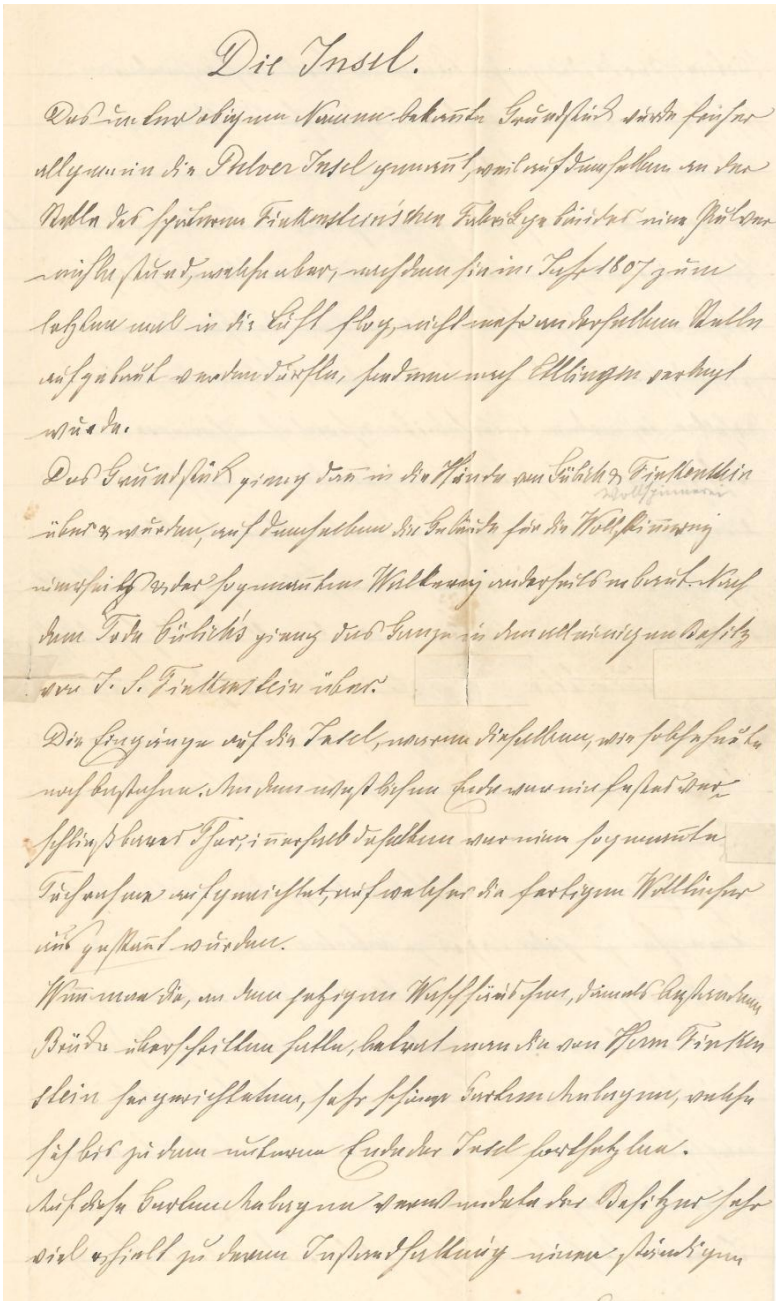 Die Insel.
Das unter obigem Namen bekannte Grundstück wurde früher
allgemein die Pulver Insel genannt, weil auf demselben an der
Stelle des späteren Finkenstein'schen Fabrikgebäudes eine Pulver
mühle stund, welche aber, nachdem sie im Jahr 1807 zum
letzten mal in die Luft flog, nicht mehr an derselben Stelle
aufgebaut werden durfte, sondern nach Ettlingen verlegt
wurde.
Das Grundstück gieng dann in die Hände von & Finkenstein
Wollspinnerei
über & wurden, auf demselben die Gebäude für die Wollspinnerei
einerseits & der sogenannten Walkerei anderseits erbaut. Nach
dem Tode gieng das Ganze in den alleinigen Besitz
von Finkenstein über.
Die Eingänge auf die Insel, waren dieselben, wie solche heute
noch bestehen. An dem westlichen Ende war ein festes ver-
schließbares Thor, innerhalb desselben war eine sogenannte
Tuchrahme aufgerichtet, auf welcher die fertigen Wolltücher
ausgespannt wurden.
Wenn man die, an dem jetzigen Waschhäuschen, damals bestandene
Brücke überschritten hatte, betrat man die von Herrn Finken
stein hergerichteten, sehr schönen Garten Anlagen, welche
sich bis zu dem unteren Ende der Insel fortsetzten.
Auf diese Garten Anlagen verwendete der Besitzer sehr
viel & hielt zu deren Instandhaltung einen ständigen